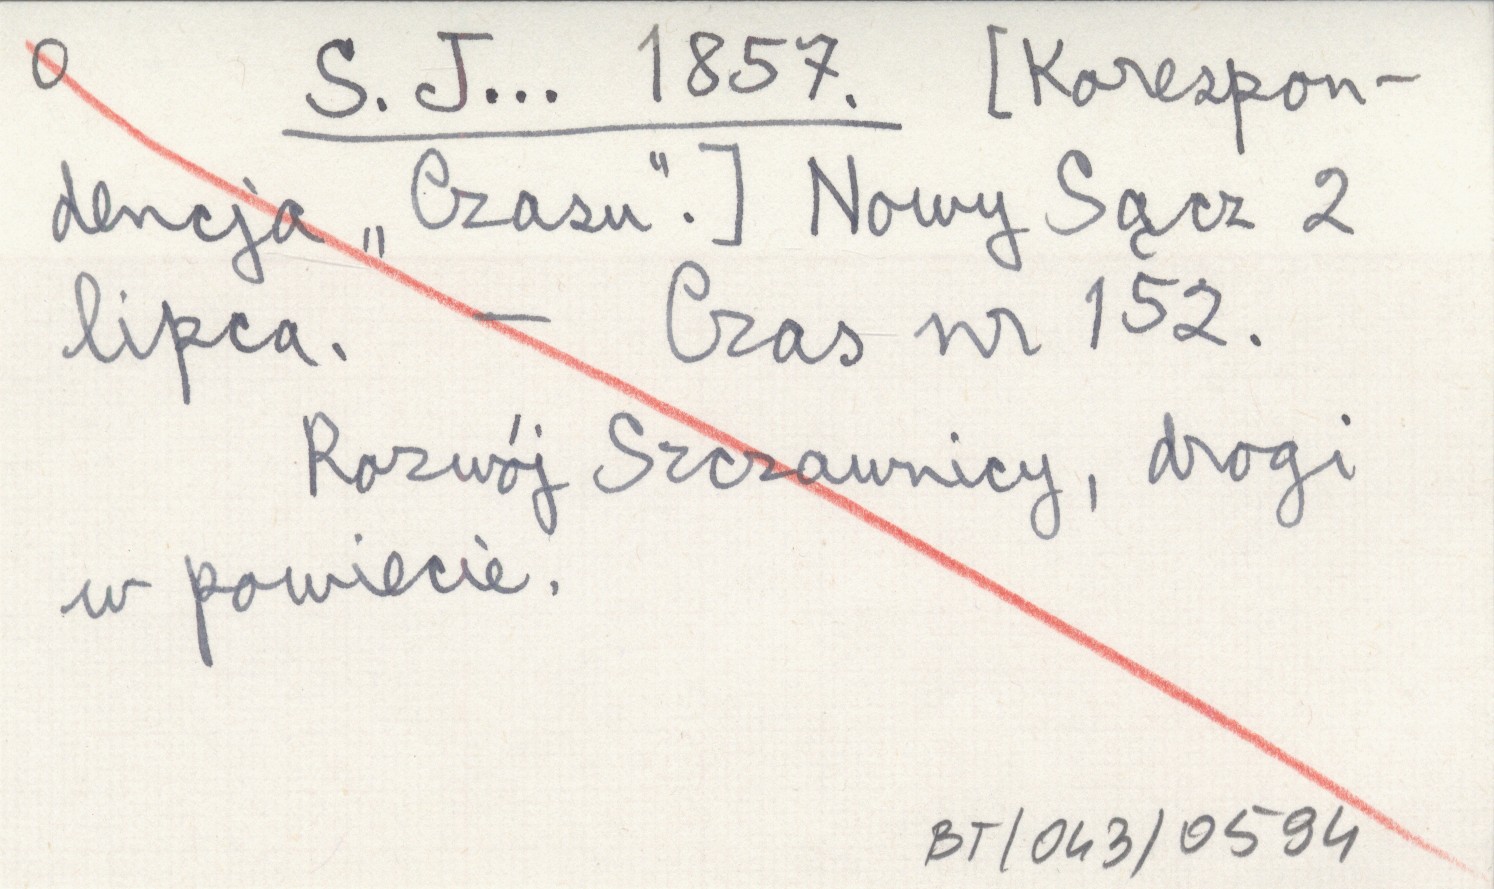 0 S. J... 1857. [Korespon-
dencja „Czasu".] Nowy Sącz 2
lipca. — Czas nr 152.
Rozwój Szczawnicy, drogi
w powiecie.
BT/043/0594